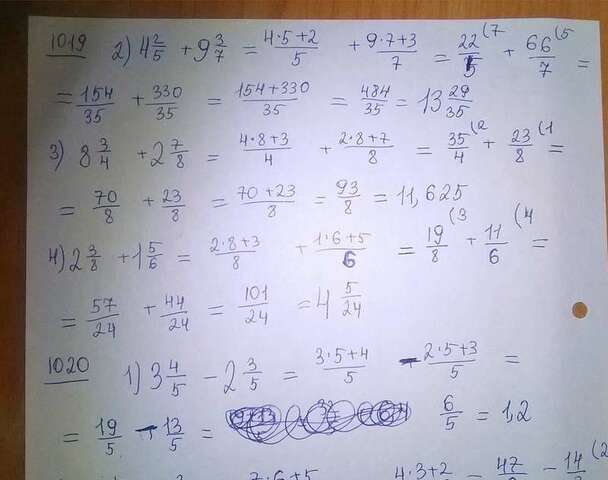 1019 2) 4 2/5 + 9 3/7 = (4·5+2)/5 + (9·7+3)/7 = 22/5 (7 + 66/7 (5 =
= 154/35 + 330/35 = (154+330)/35 = 484/35 = 13 29/35
3) 8 3/4 + 2 7/8 = (4·8+3)/4 + (2·8+7)/8 = 35/4 (2 + 23/8 (1 =
= 70/8 + 23/8 = (70+23)/8 = 93/8 = 11,625
4) 2 3/8 + 1 5/6 = (2·8+3)/8 + (1·6+5)/6 = 19/8 (3 + 11/6 (4 =
= 57/24 + 44/24 = 101/24 = 4 5/24
1020 1) 3 4/5 - 2 3/5 = (3·5+4)/5 - (2·5+3)/5 =
= 19/5 - 13/5 = 6/5 = 1,2
7·6+5 4·3+2 = 47 - 14 (2